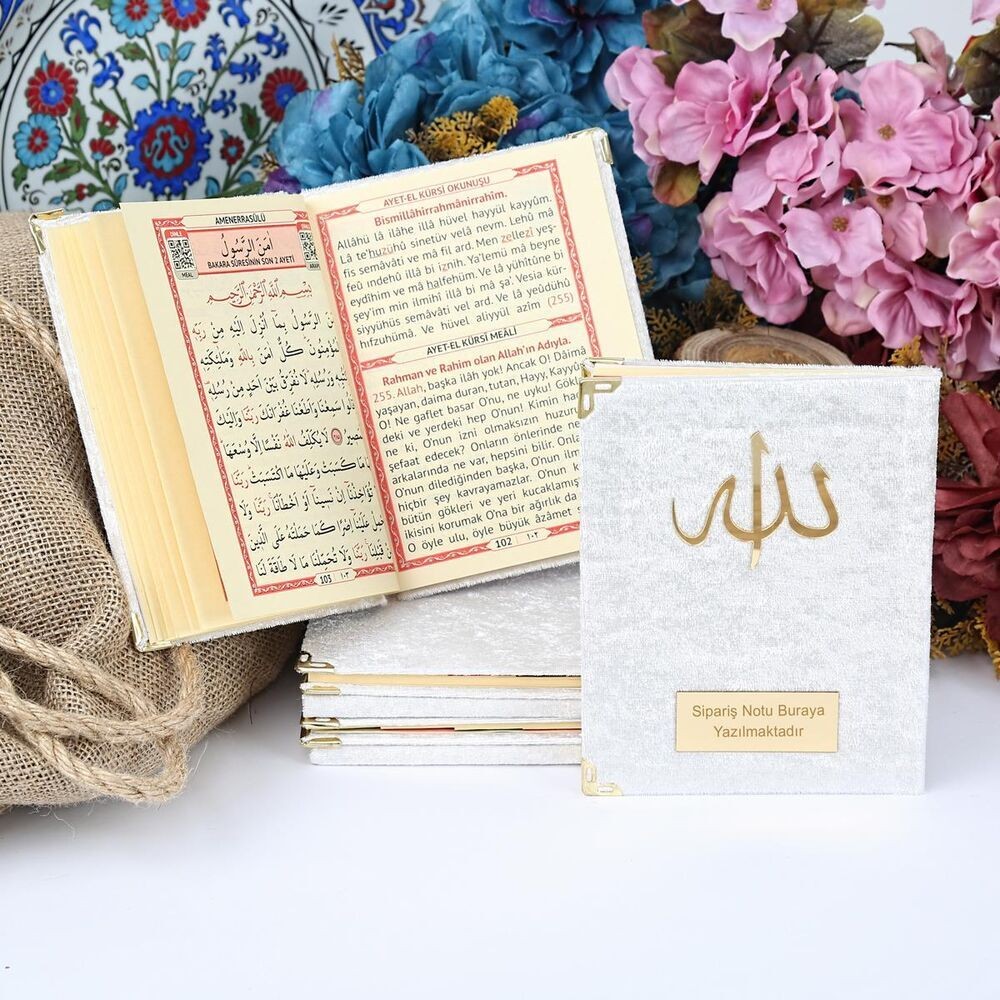 AMENERRASÛLÜ
DİNLE
MEAL
اٰمَنَ الرَّسُولُ
BAKARA SÛRESİNİN SON 2 AYETİ
بِسْمِ اللّٰهِ الرَّحْمٰنِ الرَّحِيمِ
اٰمَنَ الرَّسُولُ بِمَٓا اُنْزِلَ اِلَيْهِ مِنْ رَبِّهٖ
وَالْمُؤْمِنُونَ كُلٌّ اٰمَنَ بِاللّٰهِ وَمَلٰٓئِكَتِهٖ
وَكُتُبِهٖ وَرُسُلِهٖ لَا نُفَرِّقُ بَيْنَ اَحَدٍ مِنْ رُسُلِهٖ
وَقَالُوا سَمِعْنَا وَاَطَعْنَا غُفْرَانَكَ رَبَّنَا وَاِلَيْكَ
الْمَصِيرُ لَا يُكَلِّفُ اللّٰهُ نَفْسًا اِلَّا وُسْعَهَا
لَهَا مَا كَسَبَتْ وَعَلَيْهَا مَا اكْتَسَبَتْ رَبَّنَا
لَا تُؤَاخِذْنَٓا اِنْ نَسِينَٓا اَوْ اَخْطَأْنَا رَبَّنَا وَلَا
تَحْمِلْ عَلَيْنَٓا اِصْرًا كَمَا حَمَلْتَهُ عَلَى الَّذِينَ
مِنْ قَبْلِنَا رَبَّنَا وَلَا تُحَمِّلْنَا مَا لَا طَاقَةَ لَنَا
103 ١٠٣
AYET-EL KÜRSİ OKUNUŞU
Bismillâhirrahmânirrahîm.
Allâhü lâ ilâhe illâ hüvel hayyül kayyûm.
Lâ te'huzühû sinetüv velâ nevm. Lehû mâ
fis semâvâti ve mâ fil ard. Men zellezî yeş-
feû ındehû illâ bi iznih. Ya'lemü mâ beyne
eydîhim ve mâ halfehüm. Ve lâ yühîtûne bi
şey'im min ilmihî illâ bi mâ şa'. Vesia kür-
siyyühüs semâvâti vel ard. Ve lâ yeûdühû
hıfzuhümâ. Ve hüvel aliyyül azîm (255)
AYET-EL KÜRSİ MEALİ
Rahman ve Rahim olan Allah'ın Adıyla.
255. Allah, başka ilâh yok! Ancak O! Dâima
yaşayan, daima duran, tutan, Hayy, Kayyû
O! Ne gaflet basar O'nu, ne uyku! Gök
deki ve yerdeki hep O'nun! Kimin ha
ne ki, O'nun izni olmaksızın huzurun
şefaat edecek? Onların önlerinde ne
arkalarında ne var, hepsini bilir. Onla
O'nun dilediğinden başka, O'nun ilm
hiçbir şey kavrayamazlar. O'nun
bütün gökleri ve yeri kucaklamış
ikisini korumak O'na bir ağırlık da
O öyle ulu, öyle büyük âzamet s
102 ١٠٢
الله
Sipariş Notu Buraya
Yazılmaktadır